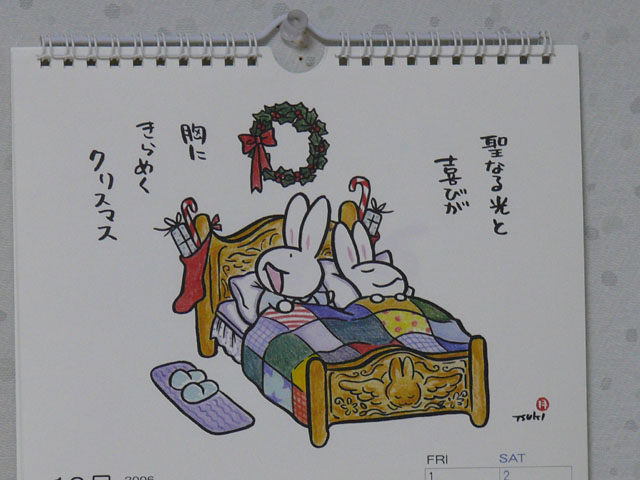 聖なる光と
喜びが
胸に
きらめく
クリスマス
TSUKI
月
12月 2006
FRI SAT
1 2